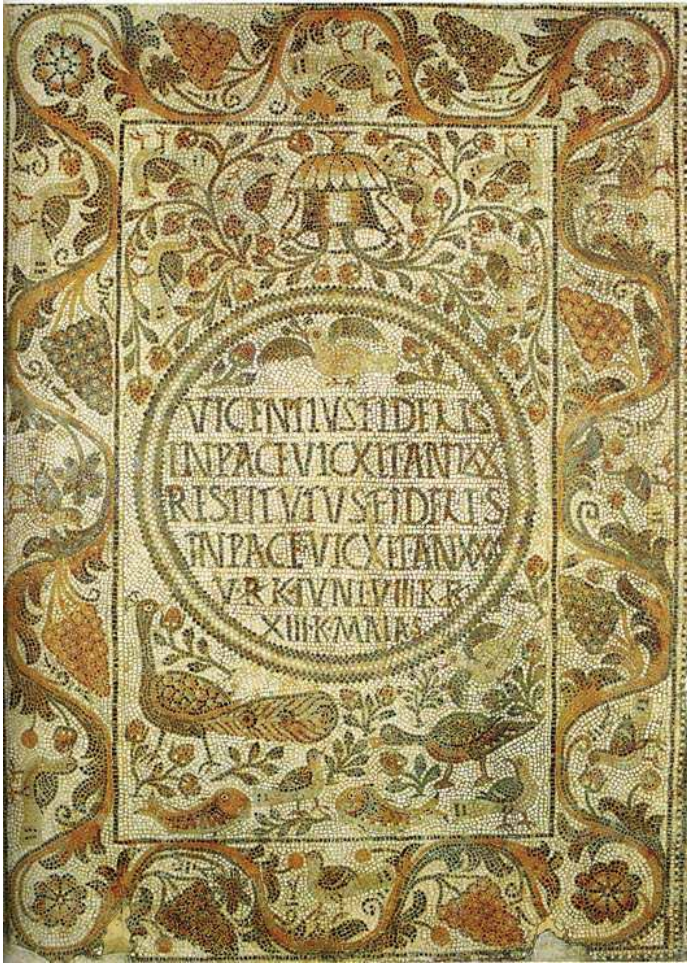 VICENTIVS FIDELIS
IN PACE VICXIT AN XX
RESTITVTVS FIDELES
IN PACE VICXIT AN XXX
V R K IVNI VIII R K
XIII K MAIAS